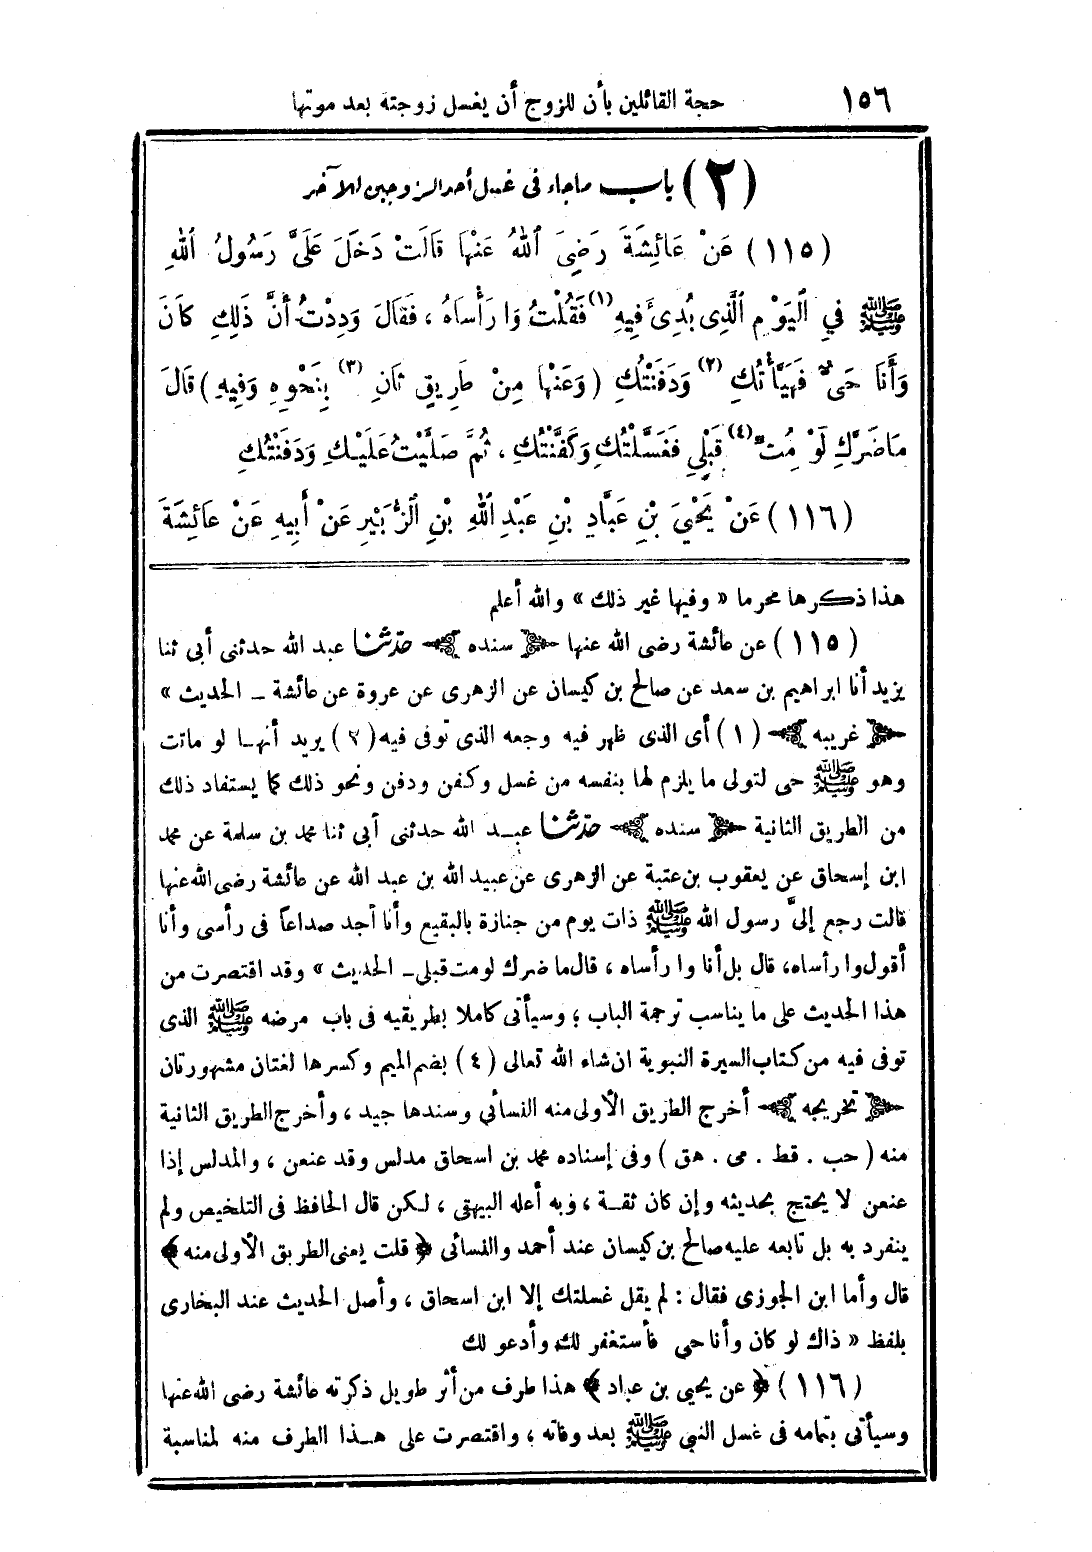 ١٥٦ حجة القائلين بأن للزوج أن يغسل زوجته بعد موتها
(٢) باب ماجاء فى غسل أحد الزوجين للآخر
(١١٥) عَنْ عَائِشَةَ رَضِىَ ٱللهُ عَنْهَا قَالَتْ دَخَلَ عَلَىَّ رَسُولُ ٱللهِ
ﷺ فِي ٱلْيَوْمِ ٱلَّذِى بُدِىءَ فِيهِ(١) فَقُلْتُ وَا رَأْسَاهُ ، فَقَالَ وَدِدْتُ أَنَّ ذَلِكِ كَانَ
وَأَنَا حَىٌّ فَهَيَّأْتُكِ (٢) وَدَفَنْتُكِ (وَعَنْهَا مِنْ طَرِيقٍ ثَانٍ (٣) بِنَحْوِهِ وَفِيهِ) قَالَ
مَاضَرَّكِ لَوْ مُتِّ(٤) قَبْلِي فَغَسَّلْتُكِ وَكَفَّنْتُكِ ، ثُمَّ صَلَّيْتُ عَلَيْكِ وَدَفَنْتُكِ
(١١٦) عَنْ يَحْيَ بْنِ عَبَّادِ بْنِ عَبْدِ ٱللهِ بْنِ ٱلزُّبَيْرِ عَنْ أَبِيهِ عَنْ عَائِشَةَ
هذا ذكرها محرما « وفيها غير ذلك » والله أعلم
(١١٥) عن عائشة رضى الله عنها ﴿ سنده ﴾ حدّثنا عبد الله حدثنى أبى ثنا
يزيد أنا ابراهيم بن سعد عن صالح بن كيسان عن الزهرى عن عروة عن عائشة ـ الحديث »
﴿ غريبه ﴾ (١) أى الذى ظهر فيه وجعه الذى توفى فيه (٢) يريد أنهـا لو ماتت
وهو ﷺ حى لتولى ما يلزم لها بنفسه من غسل وكفن ودفن ونحو ذلك كما يستفاد ذلك
من الطريق الثانية ﴿ سنده ﴾ حدّثنا عبـد الله حدثنى أبى ثنا محمد بن سلمة عن محمد
ابن إسحاق عن يعقوب بن عتبة عن الزهرى عن عبيد الله بن عبد الله عن عائشة رضى الله عنها
قالت رجع إلىَّ رسول الله ﷺ ذات يوم من جنازة بالبقيع وأنا أجد صداعاً فى رأسى وأنا
أقول وا رأساه، قال بل أنا وا رأساه ، قال ما ضرك لو مت قبلى ـ الحديث » وقد اقتصرت من
هذا الحديث على ما يناسب ترجمة الباب ؛ وسيأتى كاملا بطريقيه فى باب مرضه ﷺ الذى
توفى فيه من كتاب السيرة النبوية ان شاء الله تعالى (٤) بضم الميم وكسرها لغتان مشهورتان
﴿ تخريجه ﴾ أخرج الطريق الأولى منه النسائى وسندها جيد ، وأخرج الطريق الثانية
منه (حب . قط . مى . هق) وفى إسناده محمد بن اسحاق مدلس وقد عنعن ، والمدلس إذا
عنعن لا يحتج بحديثه وإن كان ثقـة ، وبه أعله البيهقى ، لـكن قال الحافظ فى التلخيص ولم
ينفرد به بل تابعه عليه صالح بن كيسان عند أحمد والنسائى ﴿ قلت يعنى الطريق الأولى منه ﴾
قال وأما ابن الجوزى فقال : لم يقل غسلتك إلا ابن اسحاق ، وأصل الحديث عند البخارى
بلفظ « ذاك لو كان وأنا حى فأستغفر لك وأدعو لك
(١١٦) ﴿ عن يحيى بن عباد ﴾ هذا طرف من أثر طويل ذكرته عائشة رضى الله عنها
وسيأتى بتمامه فى غسل النبى ﷺ بعد وفاته ، واقتصرت على هـذا الطرف منه لمناسبة